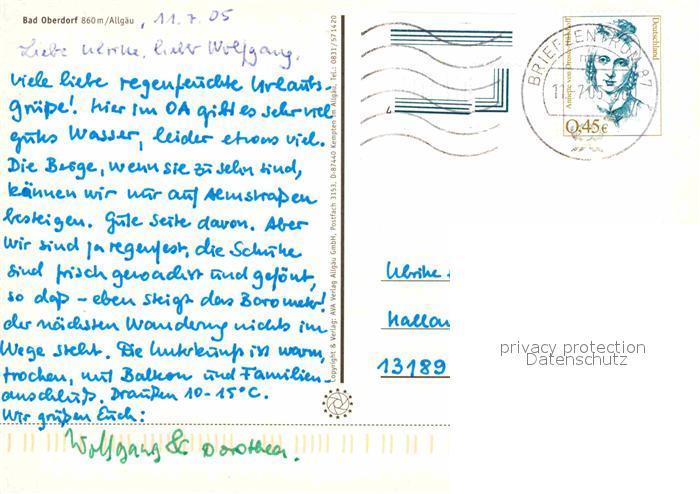 Bad Oberdorf 860m/Allgäu , 11.7.05
Liebe Ulrike, lieber Wolfgang,
viele liebe regenfeuchte Urlaubs-
grüße! Hier im OA gibt es sehr viel
gutes Wasser, leider etwas viel.
Die Berge, wenn sie zu sehn sind,
können wir nur auf Almstraßen
besteigen. Gute Seite davon. Aber
wir sind ja regenfest, die Schuhe
sind frisch gewachst und gefönt,
so daß – eben steigt das Barometer!
der nächsten Wanderung nichts im
Wege steht. Die Unterkunft ist warm,
trocken, mit Balkon und Familien-
anschluß. Draußen 10-15°C.
Wir grüßen Euch:
Wolfgang & Dorothea.
Copyright & Verlag: AVA Verlag Allgäu GmbH, Postfach 3153, D-87440 Kempten im Allgäu, Tel. 0831/571420
BRIEFZENTRUM 87
Deutschland
0,45€
Ulrike
13189
privacy protection
Datenschutz